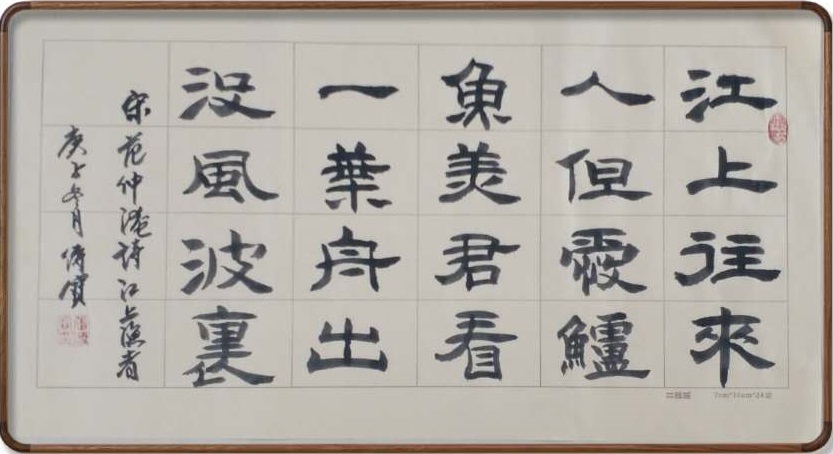 江上往來
人但愛鱸
魚美君看
一葉舟出
沒風波裏
宋范仲淹詩江上漁者
庚子冬月